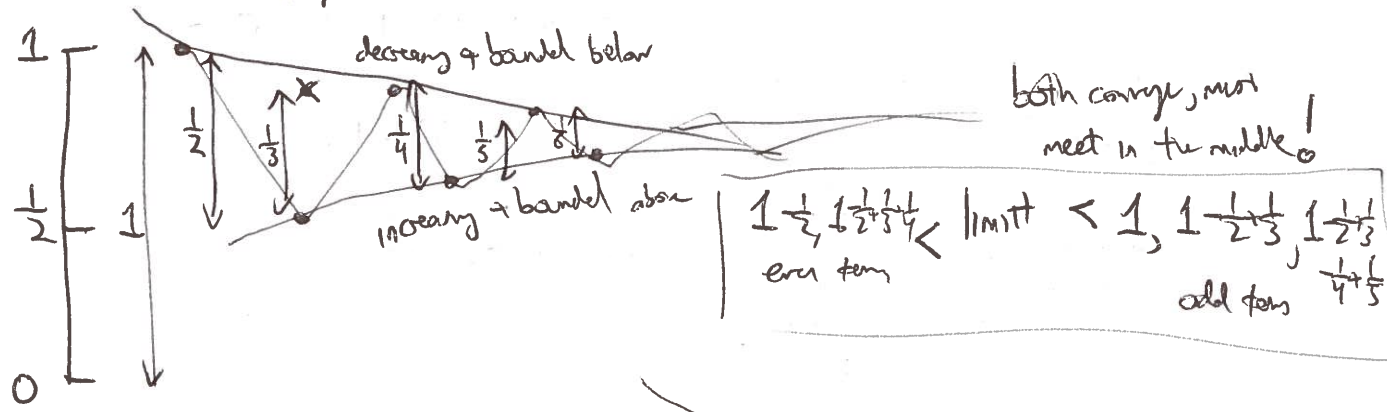 1
1/2
0
1
1/2
1/3
1/4
1/5
1/6
decreasing & bounded below
increasing + bounded above
both converge, must
meet in the middle!
1-1/2, 1-1/2+1/3-1/4 < limit < 1, 1-1/2+1/3, 1-1/2+1/3
-1/4+1/5
even terms
odd terms